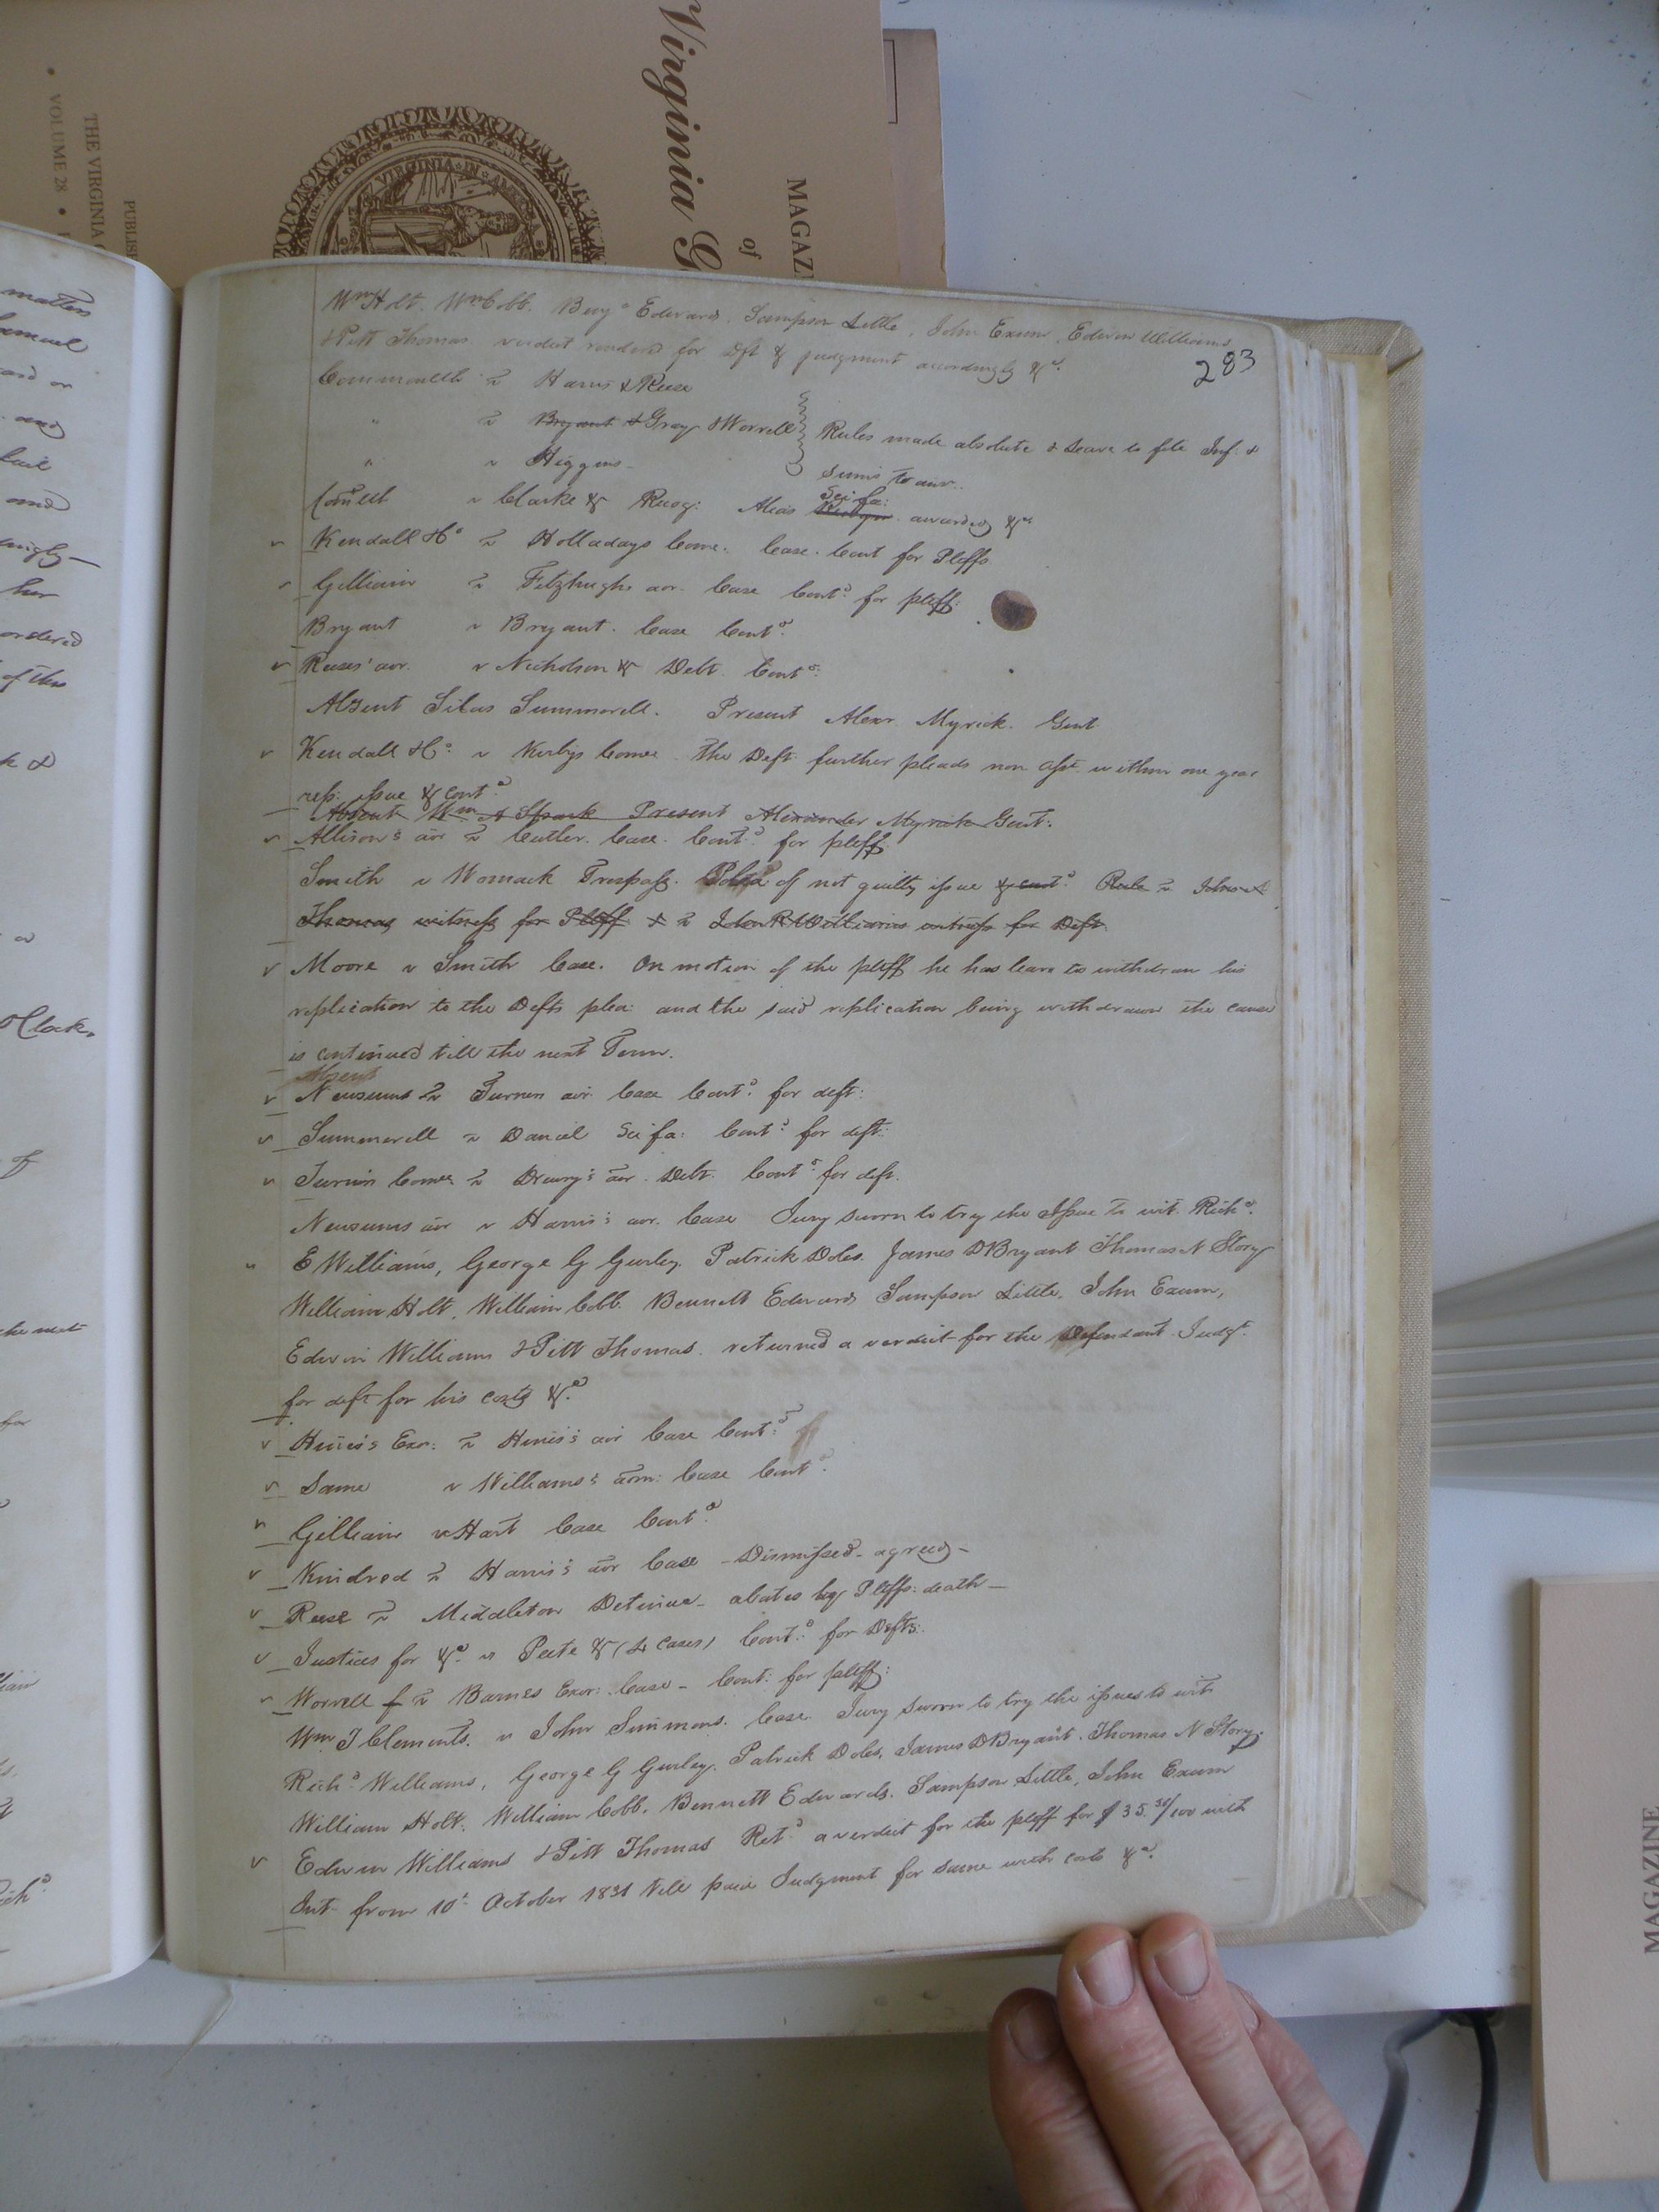 Virginia G
of
MAGAZI
PUBLISH
THE VIRGINIA
VOLUME 28
VIRGINIA IN AM
283
Wm Holt. Wm Cobb. Benj.a Edwards. Sampson Little, John Exum, Edwin Williams
& Pitt Thomas verdict rendered for Dft & judgment accordingly &c.
Commonwlth v Harris & Reese
" v Bryant & Gray & Worrell } Rules made absolute & leave to file Inf. &
" v Higgins - Sums to answ.
Comwlth v Clarke &c Recog: Alias Sci fa: awarded &c
Kendall & Co v Holladays Come. Case. Cont for Pltffs
Gilliam v Fitzhughs aor. Case Contd. for pltff:
Bryant v Bryant. Case Contd.
Reeses' aor. v Nicholson &c Debt. Contd:
Absent Silas Summerell. Present Alexr. Myrick. Gent
Kendall & Co: v Kirbys Comee. The Deft. further pleads non Asst. within one year
rep: issue & contd
Absent Wm A Spark Present Alexander Myrick Gent.
Allison's aor v Cutler. Case. Contd. for pltff.
Smith v Womack Trespass. Plea of not guilty issue & contd. Rule v John
Thomas witness for Pltff & v John R Williams witness for Deft
Moore v Smith Case. On motion of the pltff he has leave to withdraw his
replication to the Defts plea: and the said replication being withdrawn the cause
is continued till the next Term.
Absent
Newsums v Turners aor. Case Contd. for deft:
Summerell v Daniel Sci fa: Contd. for deft:
Turners Comee v Drewry's aor. Debt. Contd. for deft.
Newsums aor v Harris's aor. Case Jury sworn to try the Issue to wit. Richd.
E Williams, George G Gurley, Patrick Doles. James D Bryant Thomas N Story
William Holt, William Cobb. Bennett Edwards Sampson Little, John Exum,
Edwin Williams & Pitt Thomas. returned a verdict for the Defendant Judgt.
for deft for his costs &c.
Hines's Exor: v Hines's aor Case Contd.
Same v Williams's aom: Case Contd.
Gilliam v Hart Case Contd.
Kindred v Harris's aor Case - Dismissed - agreed -
Reese v Middleton Detinue - abates by Pltffs: death -
Justices for &c. v Peete &c (2 cases) Contd. for Defts:
Worrell v Barnes Exor: Case - Cont: for pltff:
Wm J Clements. v John Simmons. Case. Jury sworn to try the issues to wit
Richd. Williams, George G Gurley, Patrick Doles, James D Bryant. Thomas N Story.
William Holt. William Cobb. Bennett Edwards. Sampson Little, John Exum
Edwin Williams & Pitt Thomas Retd a verdict for the pltff for $35.30/100 with
Int from 10t October 1831 till paid Judgment for same with costs &c.
MAGAZINE